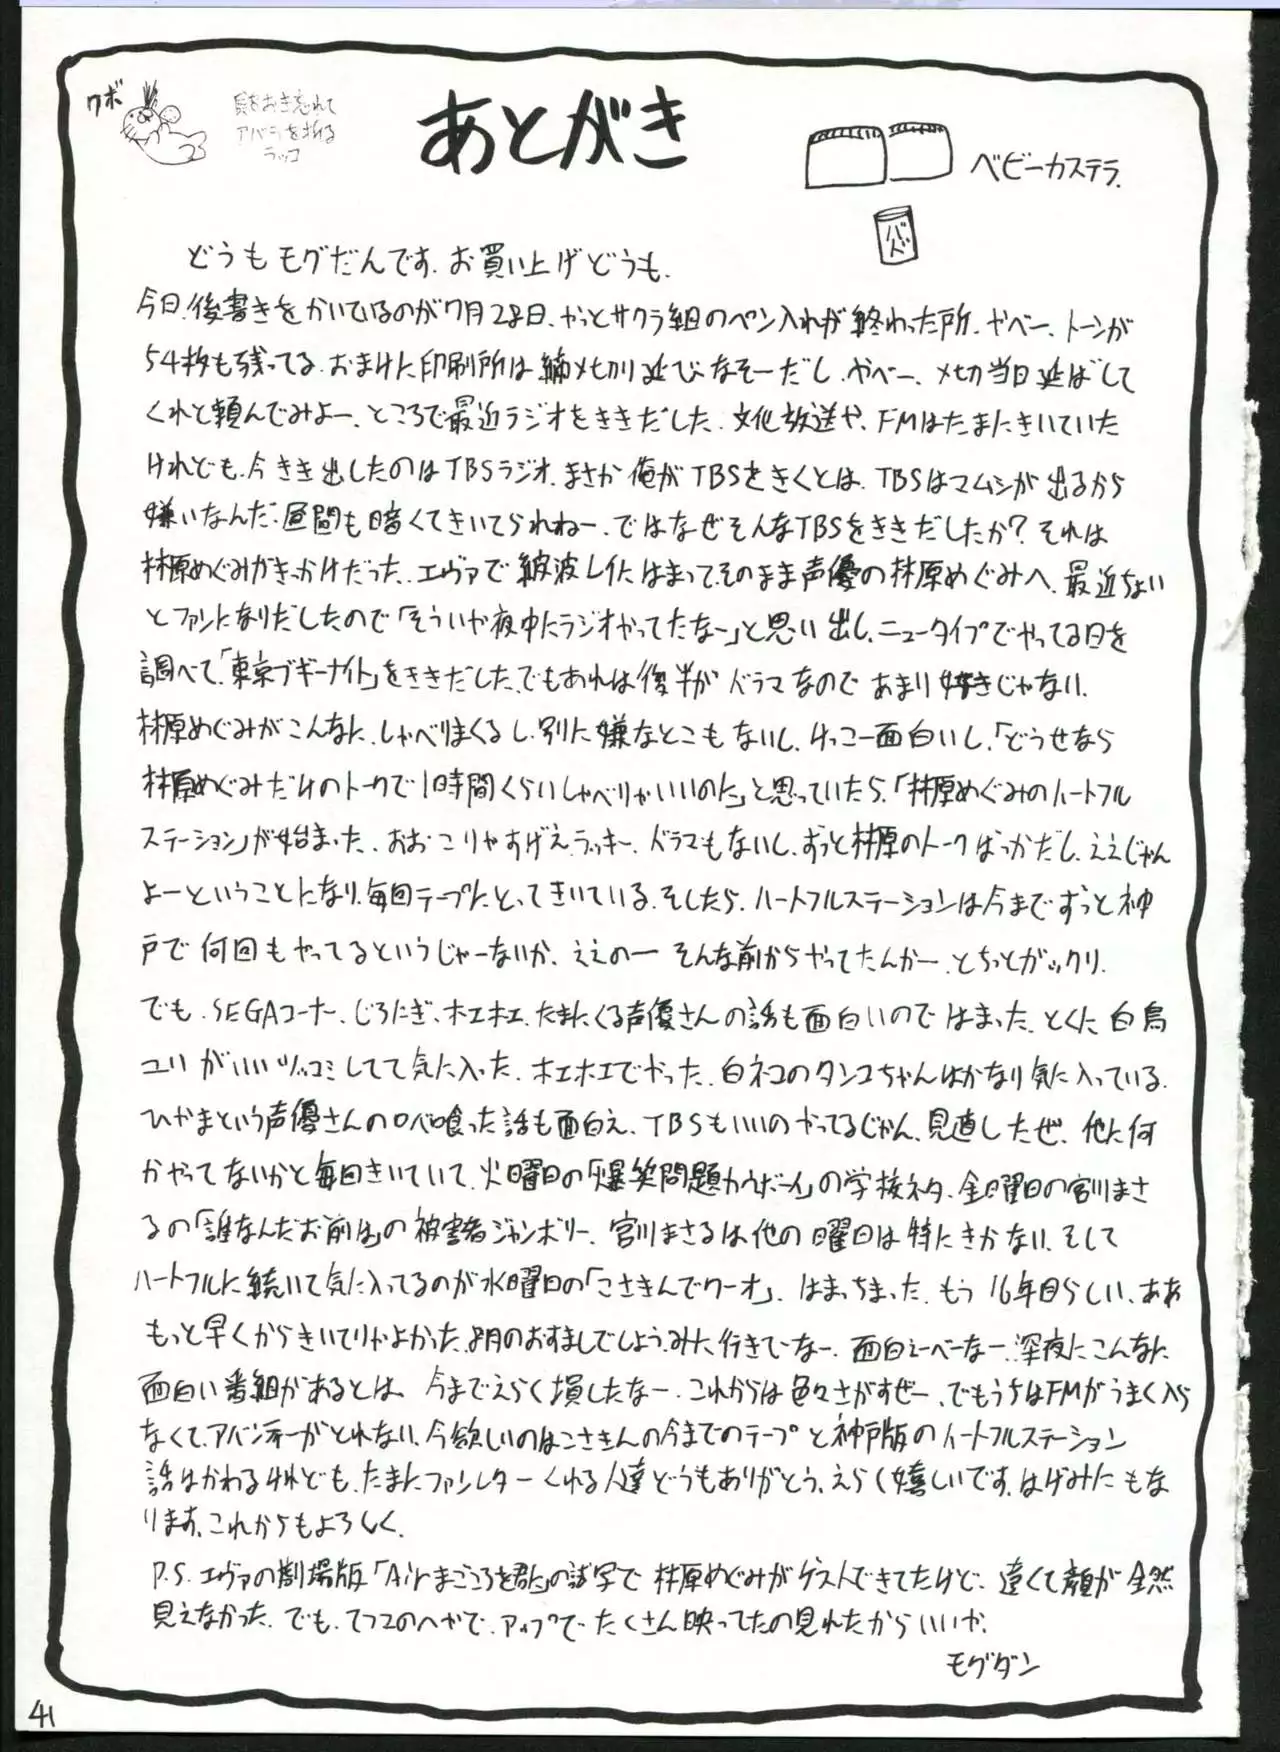 クボ
貝をおき忘れて
アバラを折る
ラッコ
あとがき
ベビーカステラ.
どうもモグだんです.お買い上げどうも.
今日,後書きをかいているのが7月28日.やっとサクラ組のペン入れが終わった所.やべー、トーンが
54枚も残ってる.おまけに印刷所は締メ切り延びなそーだし.やべー、メ切当日延ばして
くれと頼んでみよー.ところで最近ラジオをききだした.文化放送や、FMはたまにきいていた
けれども.今きき出したのはTBSラジオ.まさか俺がTBSをきくとは.TBSはマムシが出るから
嫌いなんだ.昼間も暗くてきいてられねー.ではなぜそんなTBSをききだしたか?それは
林原めぐみがきっかけだった.エヴァで綾波レイにはまって,そのまま声優の林原めぐみへ.最近ちょい
とファンになりだしたので「そういや夜中にラジオやってたなー」と思い出し.ニュータイプでやってる日を
調べて.「東京ブギーナイト」をききだした.でもあれは後半がドラマなのであまり好きじゃない.
林原めぐみがこんなに.しゃべりまくるし.別に嫌なとこもないし.けっこー面白いし.「どうせなら
林原めぐみだけのトークで1時間くらいしゃべりゃいいのに」と思っていたら.「林原めぐみのハートフル
ステーション」が始まった.おおこりゃすげえラッキー.ドラマもないし.ずっと林原のトークばっかだし.ええじゃん
よーということになり.毎回テープにとってきいている.そしたら.ハートフルステーションは今までずっと神
戸で何回もやってるというじゃーないか.ええのーそんな前からやってたんかー.とちっとガックリ.
でも.SEGAコーナー、じろたぎ.ホエホエ.たまにくる声優さんの話も面白いのではまった.とくに白鳥
ユリがいいツッコミしてて気に入った.ホエホエでやった.白ネコのタンコちゃんはかなり気に入っている.
ひやまという声優さんの口べ喰った話も面白え.TBSもいいのやってるじゃん.見直したぜ.他に何
かやってないかと毎回きいていて.火曜日の「爆笑問題カウボーイ」の学校ネタ.金曜日の宮川まさ
るの「誰なんだお前は」の被害者ジャンボリー.宮川まさるは他の曜日は特にきかない.そして
ハートフルに続いて気に入ってるのが水曜日の「こさきんでワーオ」.はまっちまった.もう16年目らしい.ああ
もっと早くからきいてりゃよかった.8月のおすましでしょう.みに行きてーなー.面白えーべーなー.深夜にこんなに
面白い番組があるとは.今までえらく損したなー.これからは色々さがすぜー.でもうちはFMがうまく入ら
なくて.アバンティーがとれない.今欲しいのはこさきんの今までのテープと神戸版のハートフルステーション
話はかわるけれども.たまにファンレターくれる人達どうもありがとう.えらく嬉しいです.はげみにもな
ります.これからもよろしく.
P.S.エヴァの劇場版「Airまごころを君に」の試写で林原めぐみがゲストできてたけど.遠くて顔が全然
見えなかった.でも.てつこのへやで.アップで.たくさん映ってたの見れたからいいや.
モグダン
41